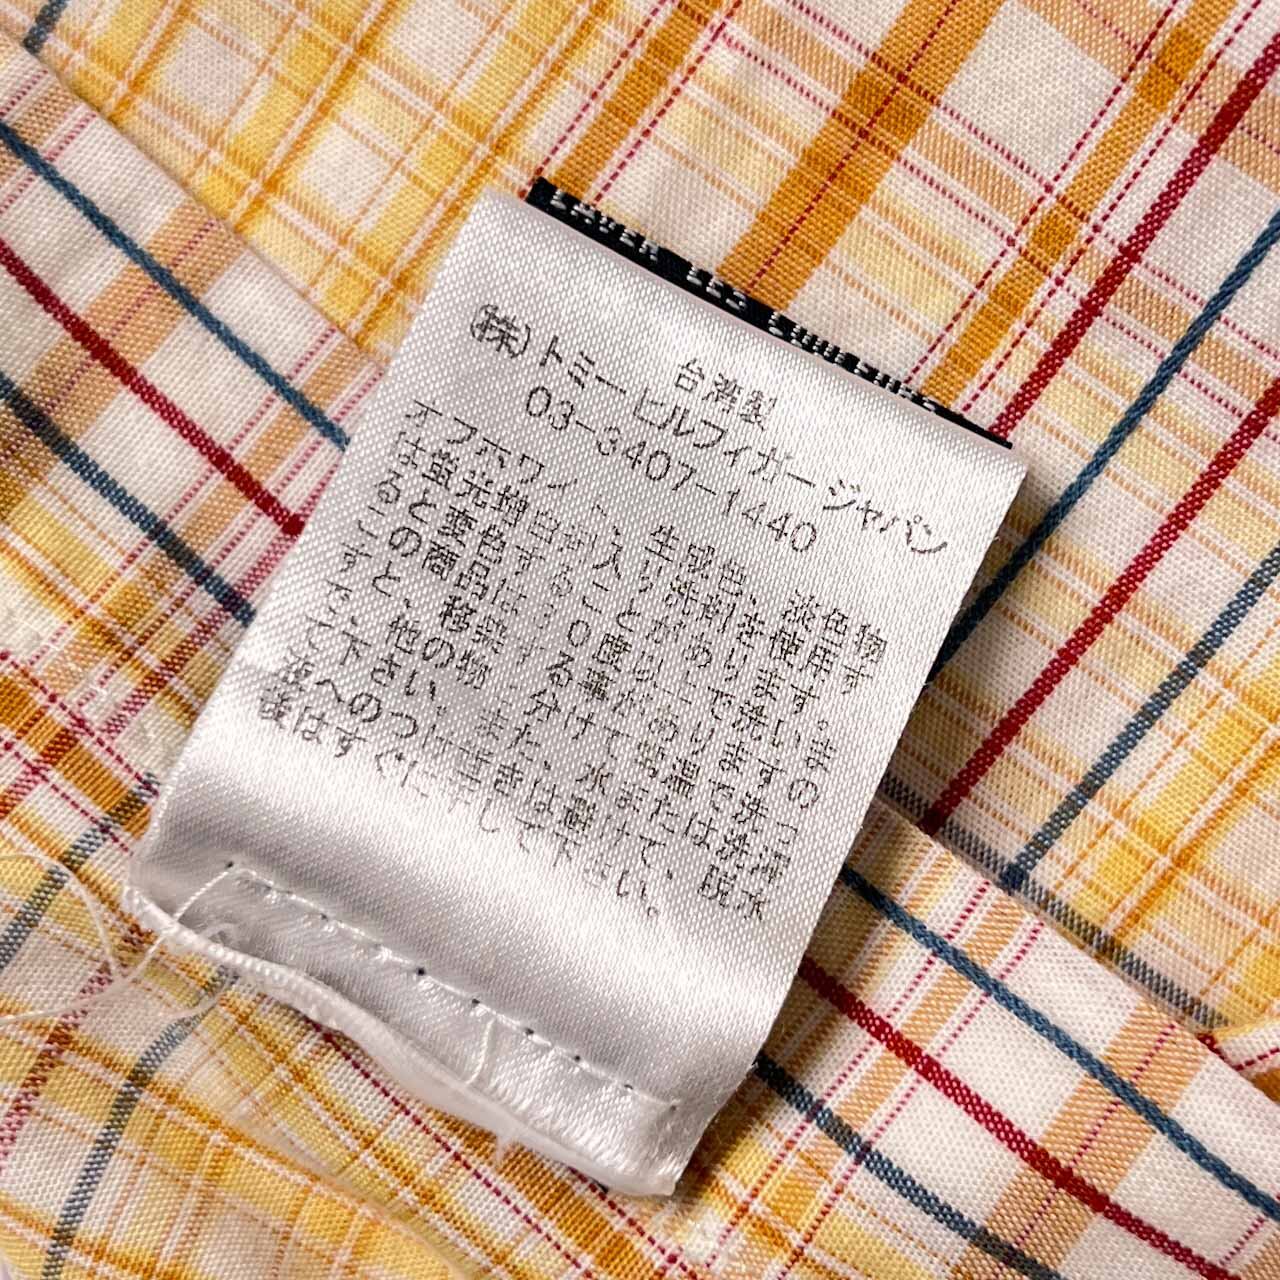 LAVER LES COULEURS
台湾製
(株)トミーヒルフィガージャパン
03-3407-1440
オフホワイト、生成色、淡色物
は蛍光増白剤入り洗剤を使用す
ると変色することがあります。
この商品は30度以上で洗いま
すと、移染する事がありますの
で、他の物と分けて常温で洗っ
て下さい。また、水または洗濯
液へのつけおきは避けて、脱水
後はすぐに干して下さい。